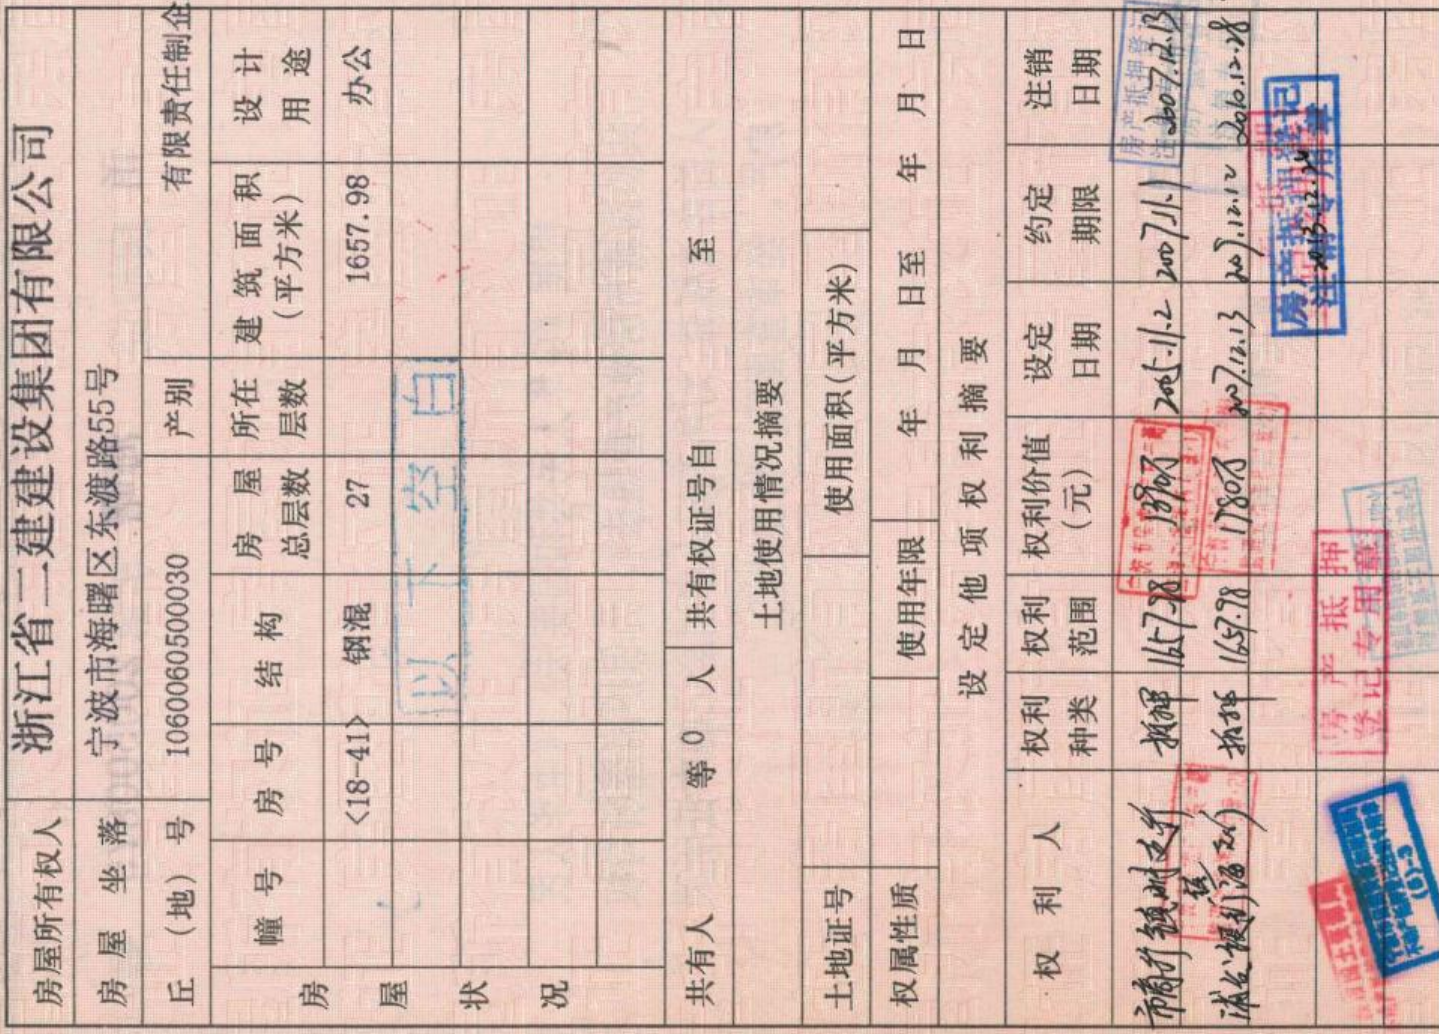 房屋所有权人 浙江省二建建设集团有限公司
房屋坐落 宁波市海曙区东渡路55号
丘(地)号 106006050030 产别 有限责任制企
房屋状况
幢号 房号 结构 房屋总层数 所在层数 建筑面积(平方米) 设计用途
<18-41> 钢混 27 1657.98 办公
以下空白
共有人 等0人 共有权证号自 至
土地使用情况摘要
土地证号 使用面积(平方米)
权属性质 使用年限 年 月 日至 年 月 日
设定他项权利摘要
权利人 权利种类 权利范围 权利价值(元) 设定日期 约定期限 注销日期
抵押 1657.98 2005.11.2 2007.11.1 2007.12.13
抵押 1657.98 1780万 2007.12.13 2010.12.12 2010.12.28
房产抵押登记
注销专用章
房产抵押
登记专用章